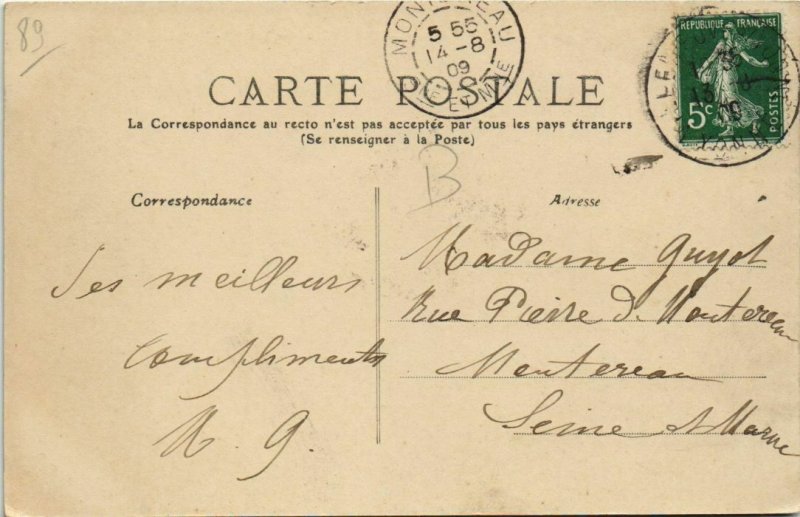 89
MONTEREAU
5 55
14-8
09
SEINE ET MNE
REPUBLIQUE FRANÇAISE
5c
POSTES
CARTE POSTALE
La Correspondance au recto n'est pas acceptée par tous les pays étrangers
(Se renseigner à la Poste)
B
Correspondance
Ses meilleurs
Compliments
M. G.
Adresse
Madame Guyot
Rue Pierre d. Montereau
Montereau
Seine et Marne